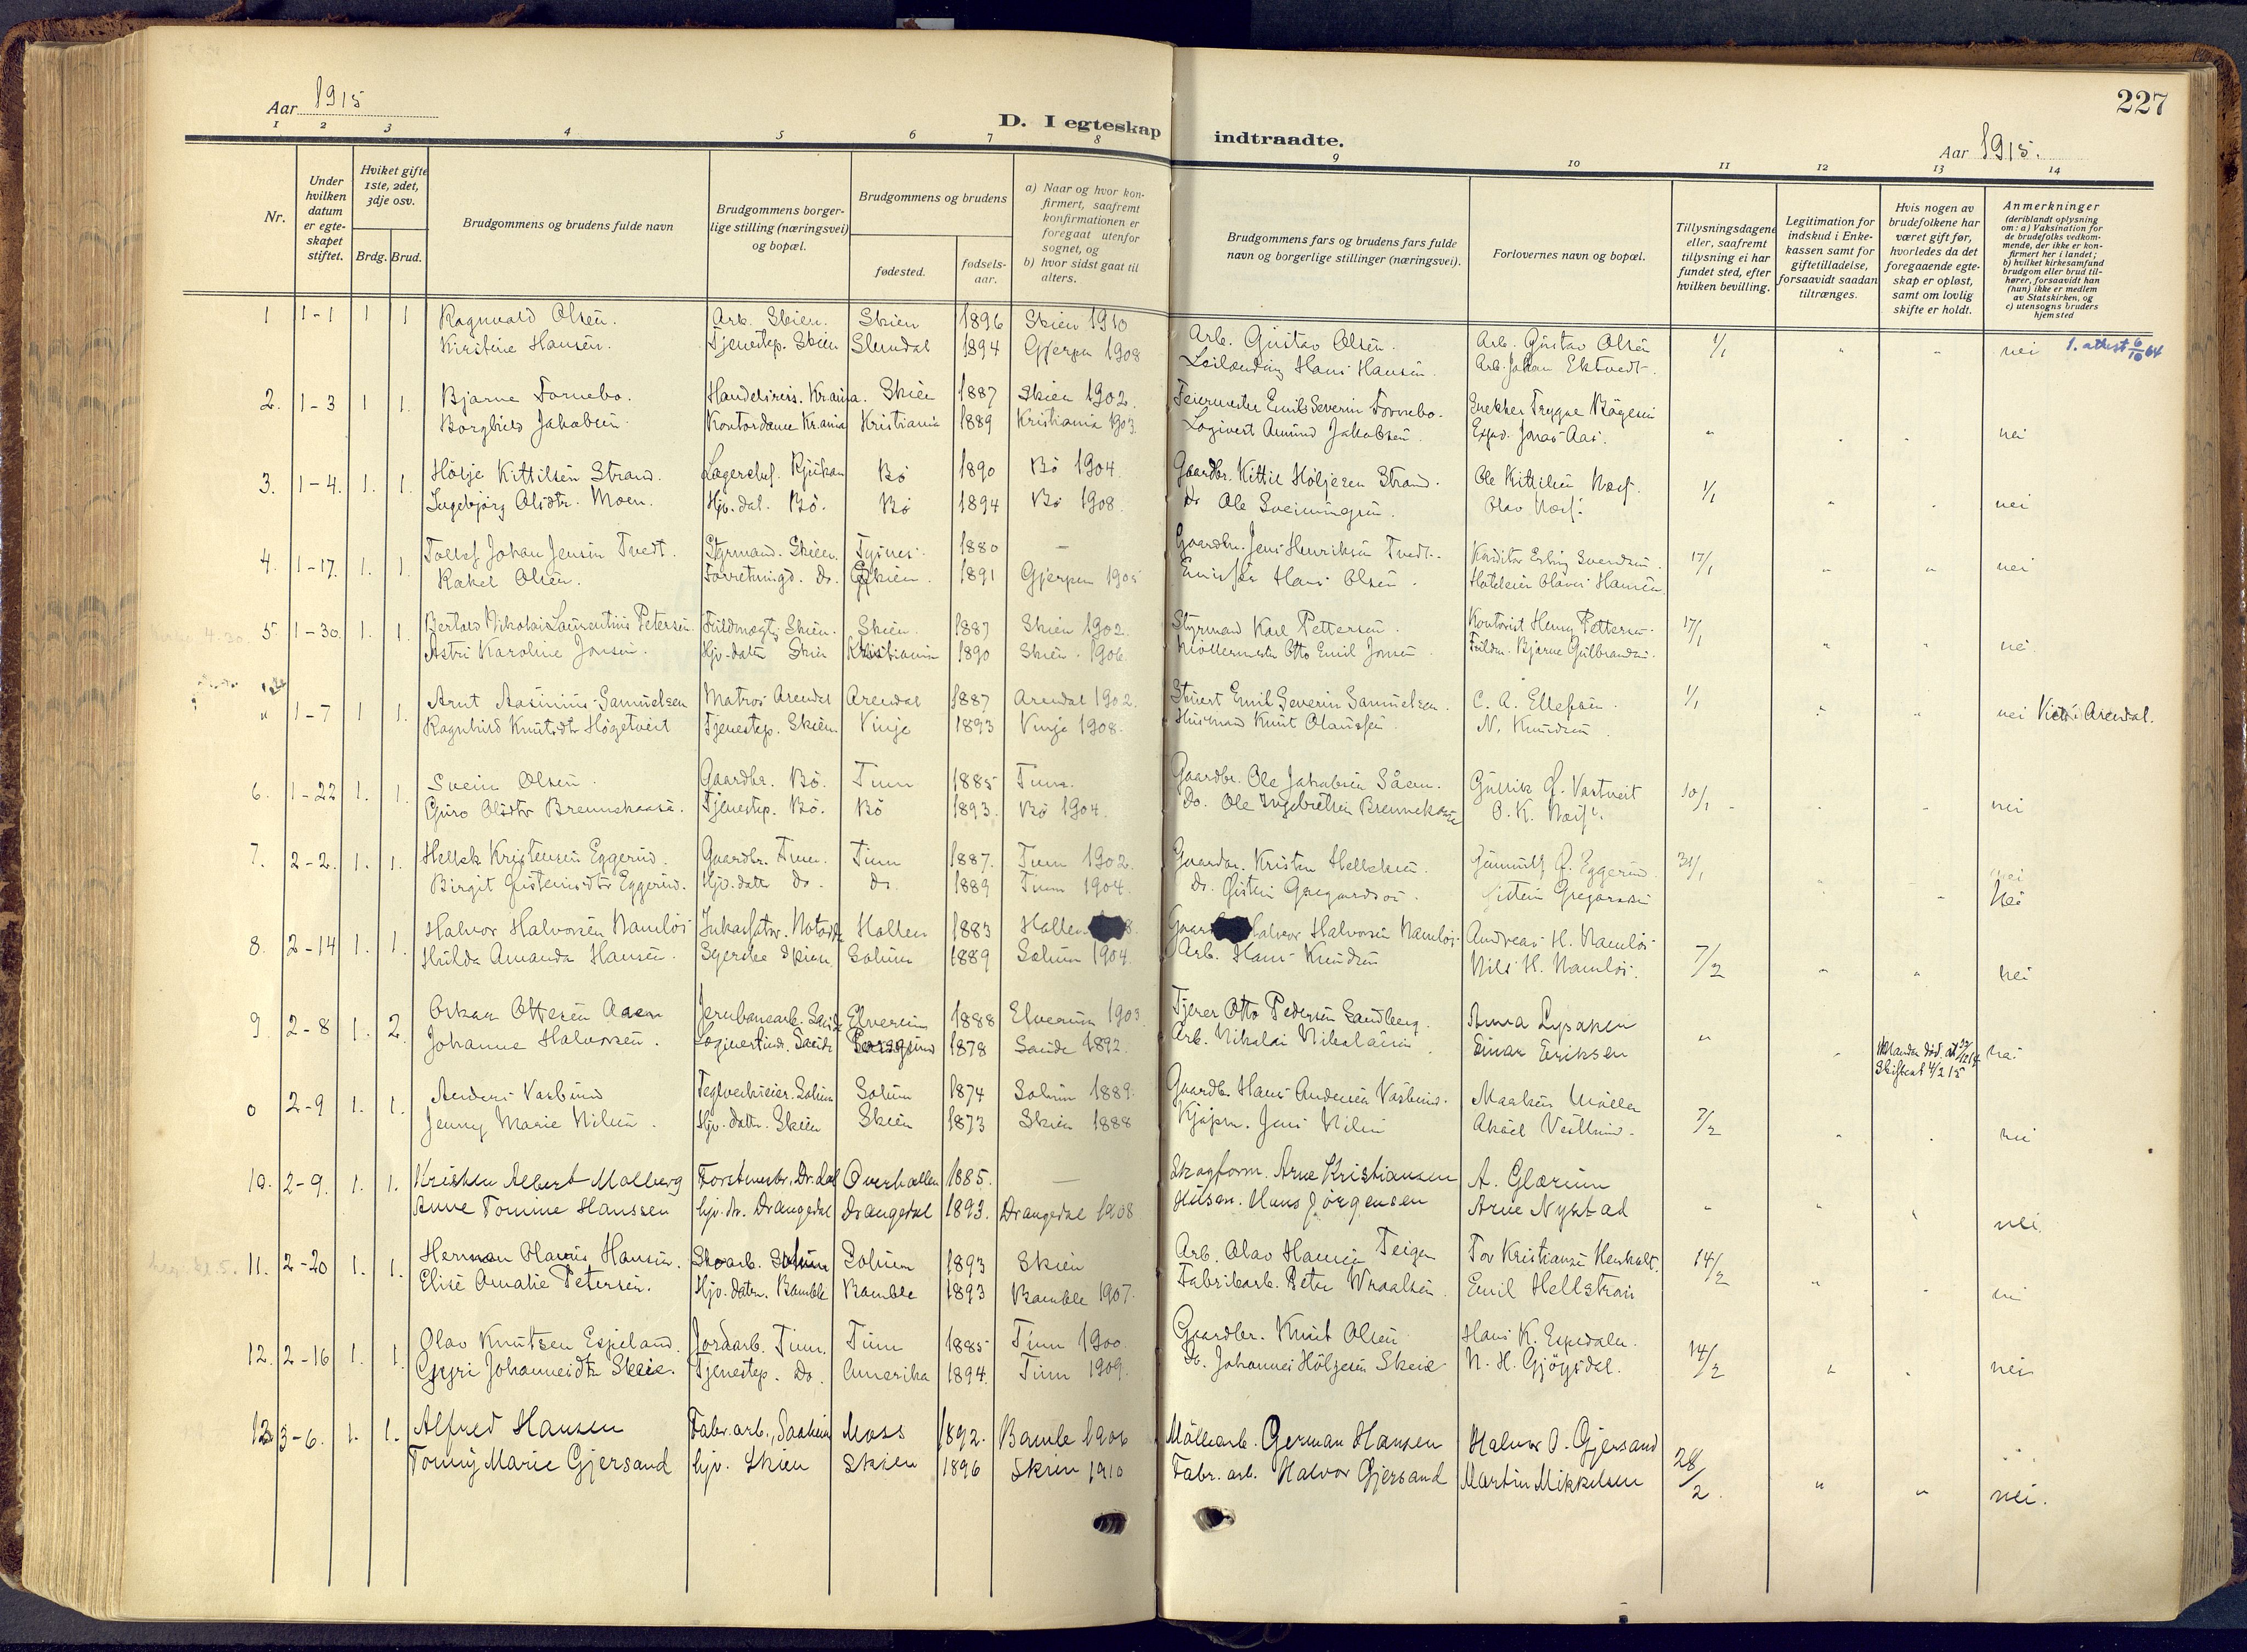 227
Aar 1915
D. I egteskap indtraadte.
Aar 1915.
1 2 3 4 5 6 7 8 9 10 11 12 13 14
Nr.
Under hvilken datum er egteskapet stiftet.
Hviket gifte 1ste, 2det, 3dje osv.
Brdg. Brud.
Brudgommens og brudens fulde navn
Brudgommens borgerlige stilling (næringsvei) og bopæl.
Brudgommens og brudens
fødested.
fødselsaar.
a) Naar og hvor konfirmert, saafremt konfirmationen er foregaat utenfor sognet, og
b) hvor sidst gaat til alters.
Brudgommens fars og brudens fars fulde navn og borgerlige stillinger (næringsvei).
Forlovernes navn og bopæl.
Tillysningsdagene eller, saafremt tillysning ei har fundet sted, efter hvilken bevilling.
Legitimation for indskud i Enkekassen samt for giftetilladelse, forsaavidt saadan tiltrænges.
Hvis nogen av brudefolkene har været gift før, hvorledes da det foregaaende egteskap er opløst, samt om lovlig skifte er holdt.
Anmerkninger
(deriblandt oplysning om: a) Vaksination for de brudefolks vedkommende, der ikke er konfirmert her i landet; b) hvilket kirkesamfund brudgom eller brud tilhører, forsaavidt han (hun) ikke er medlem av Statskirken, og c) utensogns bruders hjemsted
1 1-1 1 1 Ragnvald Olsen. Arb. Skien. Skien 1896 Skien 1910 Arb. Gustav Olsen. Arb. Gustav Olsen 1/1 " " nei 1. attest 6/10 64
Kirstine Hansen. Tjenestep. Skien 1894 Gjerpen 1908 Leilænding Hans Hansen. Arb. Johan Ektvedt.
2. 1-3 1 1. Bjarne Fornebo. Handelsreis. Kr.ania. Skien 1887 Skien 1902. Feiermester Emil Severin Fornebo. Trygve " " " nei
Borghild Jakobsen. Kontordame Kr.ania Kristiania 1889 Kristiania 1903. Logivert Amund Jakobsen. Exped. Jonas Aas.
3. 1-4. 1. 1. Hølje Kittilsen Strand. Lagerchef. Rjukan Bø 1890 Bø 1904. Gaardbr. Kittil Høljesen Strand. Ole Kittilsen 1/1 " " nei
Ingebjørg Olsdtr. Moen. Hjv. dat. Bø. Bø 1894 Bø 1908. Do Ole Sveinungsen. Olav
4. 1-17. 1. 1. Tollef Johan Jensen Tvedt. Styrmand. Skien. 1880 — Gaardbr. Jens Henriksen Tvedt. Konditor Erling Svendsen. 17/1 " " nei
Rakel Olsen. Forretningsd. Do. Skien. 1891 Gjerpen 1905 Hans Olsen. Hoteleier Olaves Hansen.
5. 1-30. 1. 1. Bertold Nikolai Laurentius Petersen. Fuldmægt. Skien. Skien. 1887 Skien 1902. Styrmand Karl Pettersen. Kontorist Henry Pettersen. 17/1 " " nei.
Astri Karoline Jonsen. Hjv. datter Skien Kristiania 1890 Skien. 1906. Møllermester Otto Emil Jonsen. Fuldm. Bjarne Gulbrandsen.
" 1-7 1 1. Arnt Samuelsen Matros Arendal Arendal 1887 Arendal 1902. Stuert Emil Severin Samuelsen. C. A. Ellefsen. 1/1 " " nei Viet i Arendal.
Ragnhild Knutsdtr Høgetveit Tjenestep. Skien Vinje 1893 Vinje 1908. Husmand Knut Olavssen. N. Knudsen.
6. 1-22 1. 1. Svein Olsen. Gaardbr. Bø. Tinn 1885 Tinn. Gaardbr. Ole Jakobsen Såem. Gullik G. Vastveit 10/1 " " nei
Guro Olsdtr Brennekaasa. Tjenestep. Bø. Bø 1893. Bø 1904. Do. Ole Ingebretsen Brennekaasa O. K.
7. 2-2. 1. 1. Hellek Kristensen Eggerud. Gaardbr. Tinn. Tinn 1887. Tinn 1902. Gaardbr. Kristen Helleksen. Gunnulf Ø. Eggerud. 31/1 " " nei
Birgit Østensdtr Eggerud. Hjv. datter do. do. 1889 Tinn 1904. Do. Østen Gregardson. Gregarsen nei
8. 2-14 1. 1. Halvor Halvorsen Namløs Inkassator. Notodden 1883 Gaardbr. Halvor Halvorsen Namløs. Andreas H. Namløs 7/2 " " nei
Hulda Amanda Hansen. Syerske Skien Solum 1889 Solum 1904. Arb. Hans Knudsen Nils H. Namløs.
9. 2-8 1. 2. Oskar Ottesen Aasen Jernbanearb. Elverum 1888 Elverum 1903 Otto Pedersen Sandberg. Anna Lysaker " " Manden død. Skiftet 4/2 15 nei
Johanne Halvorsen. Porsgrund 1878 1892. Arb. Nikolai Nikolaisen. Einar Eriksen
0 2-9 1. 1. Anders Vasbund Teglverkseier. Solum Solum 1874 Solum 1889. Gaardbr. Hans Andersen Vasbund. Møller 7/2 " " nei
Jenny Marie Nilsen. Hjv. dattr. Skien Skien 1873 Skien 1888 Kjøpm. Jens Nilsen Aksel
10. 2-9. 1. 1. Kristen Albert Malberg Overhallen 1885. — Skogform. Arne Kristiansen A. Glærum " " " nei.
Anne Tomine Hanssen hjv. dr. Drangedal Drangedal 1893. Drangedal 1908 Husm. Hans Jørgensen Arne Nystad
11. 2-20 1. 1. Herman Olavus Hansen. Skoarb. Solum Solum 1893 Skien Arb. Olav Hansen Teigen Tov Kristiansen 14/2 " " nei
Elise Amalie Petersen. Hjv. dattr. Bamble Bamble 1893 Bamble 1907. Fabrikarb. Peter Wraalsen. Emil Hellstrøm
12. 2-16 1. 1. Olav Knutsen Espeland. Jordarb. Tinn. Tinn 1885 Tinn 1900. Gaardbr. Knut Olsen Hans K. Espedalen. 14/2 " " nei
Gyri Johannesdtr Skeie. Tjenestep. Do. Amerika 1894. Tinn 1909. Do. Johannes Høljesen Skeie N. H. Gjøysdal.
13 3-6. 1. 1. Alfred Hansen Fabr. arb., Moss 1892. Bamle 1906 Møllearb. German Hansen Halvor O. Gjersand 28/2 " " nei.
Tonny Marie Gjersand hjv. Skien Skien 1896 Skien 1910 Fabr. arb. Halvor Gjersand Martin Mikkelsen